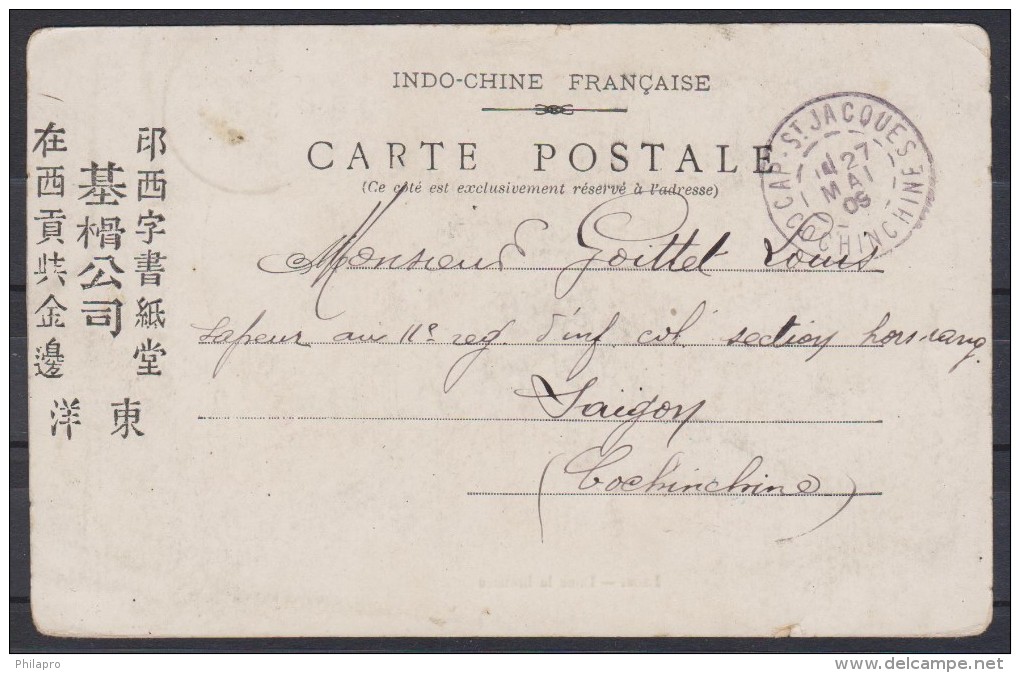 INDO-CHINE FRANÇAISE
CARTE POSTALE
(Ce côté est exclusivement réservé à l'adresse)
CAP-ST. JACQUES
COCHINCHINE
27
MAI
09
Monsieur Goittet Louis
Sapeur au 11e reg. d'inf. col. section hors rang
Saigon
(Cochinchine)
印西字書紙堂
基櫘公司
在西貢金邊
東洋
Philapro
www.delcampe.net